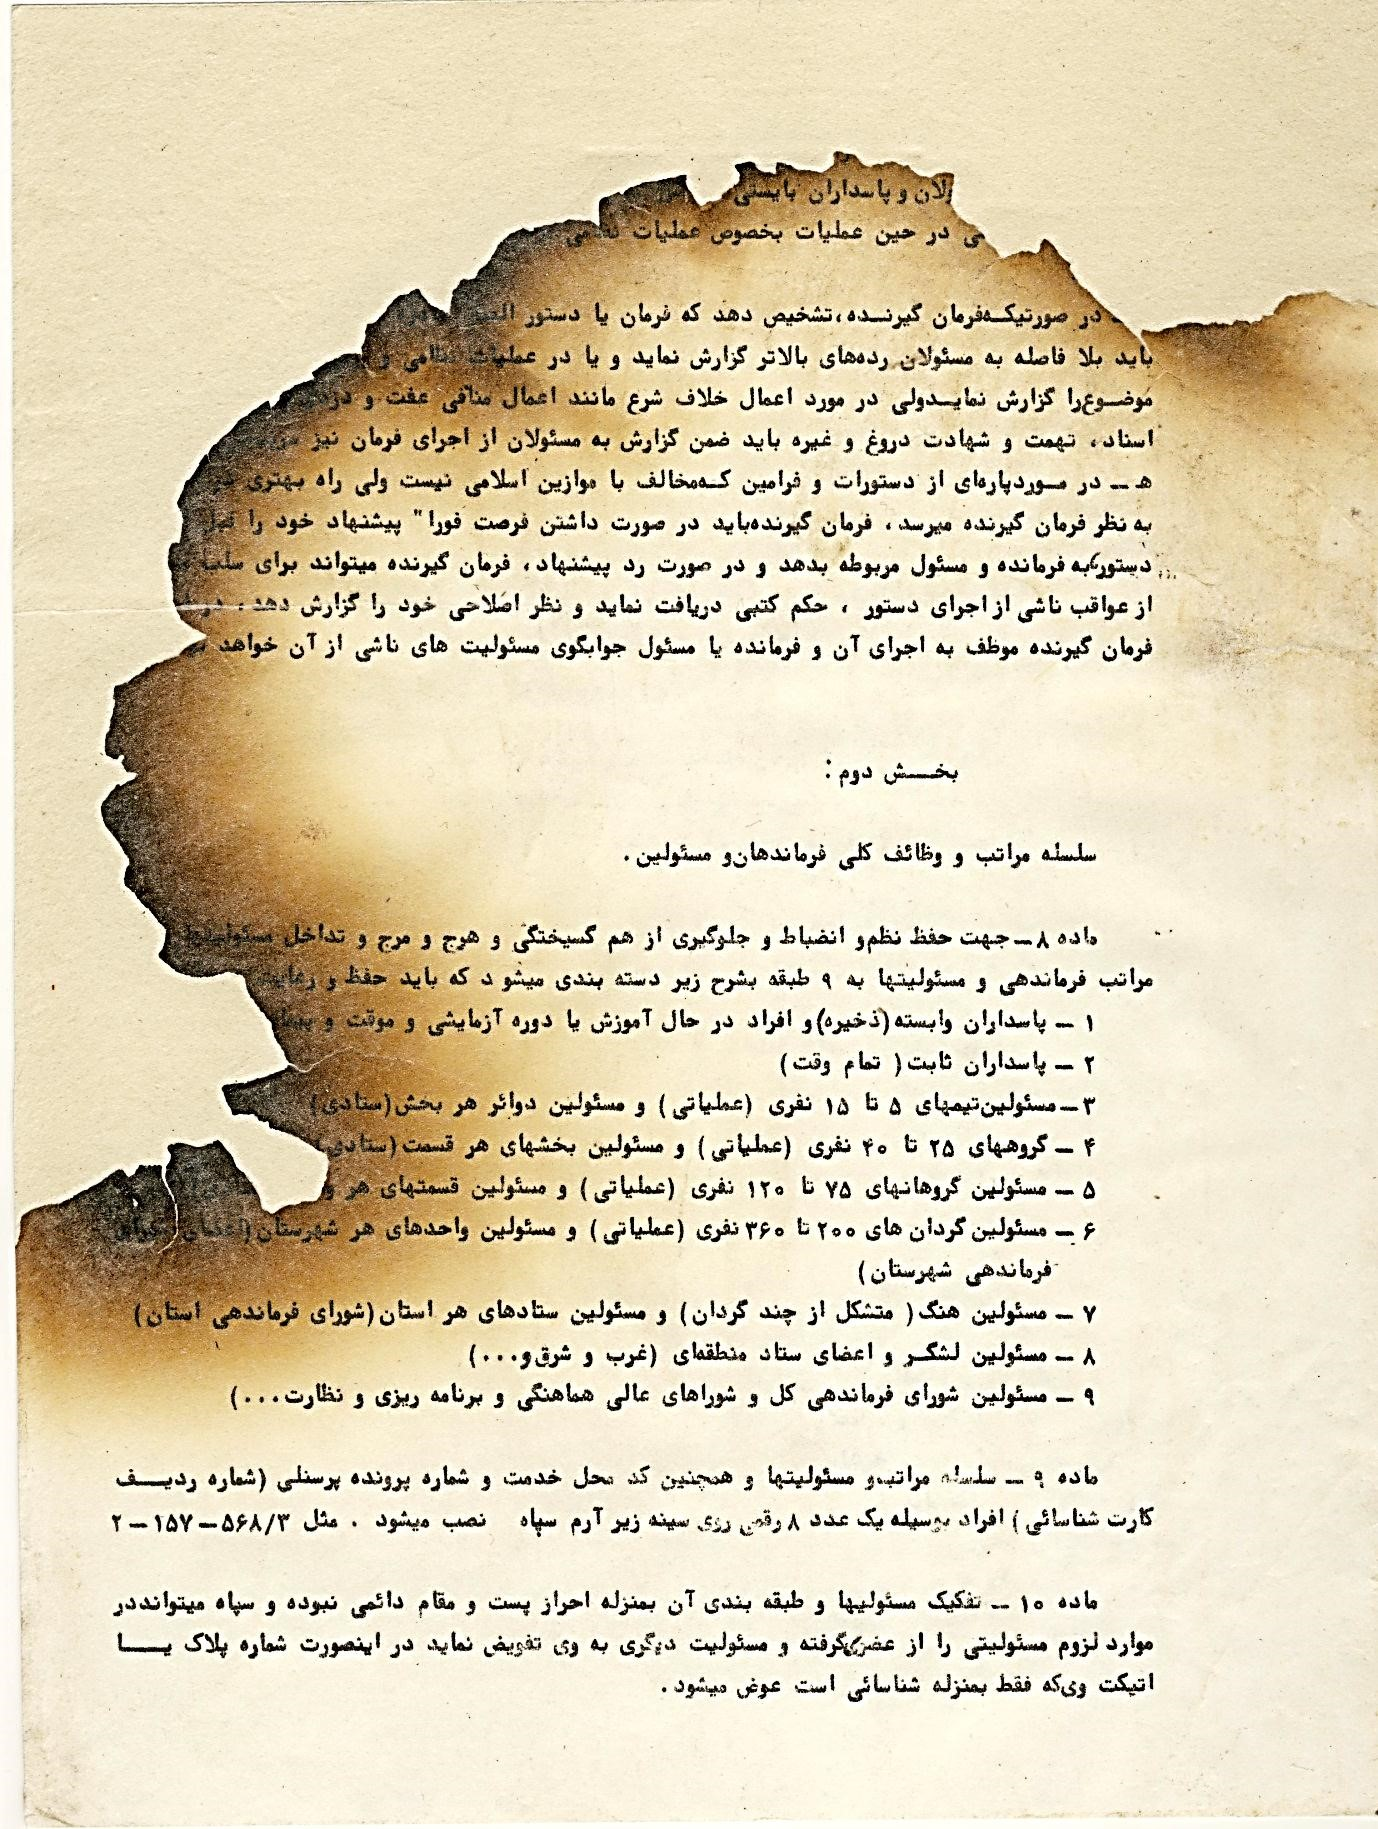 و پاسداران بایستی
در حین عملیات بخصوص عملیات
در صورتیکه فرمان گیرنده، تشخیص دهد که فرمان یا دستور
باید بلا فاصله به مسئولان رده‌های بالاتر گزارش نماید و یا در عملیات نظامی و
موضوع را گزارش نماید ولی در مورد اعمال خلاف شرع مانند اعمال منافی عفت و
اسناد، تهمت و شهادت دروغ و غیره باید ضمن گزارش به مسئولان از اجرای فرمان نیز
هـ ـ در مورد پاره‌ای از دستورات و فرامین که مخالف با موازین اسلامی نیست ولی راه بهتری
به نظر فرمان گیرنده میرسد، فرمان گیرنده باید در صورت داشتن فرصت فورا" پیشنهاد خود را
دستور به فرمانده و مسئول مربوطه بدهد و در صورت رد پیشنهاد، فرمان گیرنده میتواند برای
از عواقب ناشی از اجرای دستور ، حکم کتبی دریافت نماید و نظر اصلاحی خود را گزارش دهد،
فرمان گیرنده موظف به اجرای آن و فرمانده یا مسئول جوابگوی مسئولیت های ناشی از آن خواهد
بخش دوم :
سلسله مراتب و وظائف کلی فرماندهان و مسئولین .
ماده ۸ ـ جهت حفظ نظم و انضباط و جلوگیری از هم گسیختگی و هرج و مرج و تداخل مسئولیتها
مراتب فرماندهی و مسئولیتها به ۹ طبقه بشرح زیر دسته بندی میشود که باید حفظ و رعایت
۱ ـ پاسداران وابسته (ذخیره) و افراد در حال آموزش یا دوره آزمایشی و موقت و
۲ ـ پاسداران ثابت ( تمام وقت)
۳ ـ مسئولین تیمهای ۵ تا ۱۵ نفری (عملیاتی) و مسئولین دوائر هر بخش (ستادی)
۴ ـ گروههای ۲۵ تا ۴۰ نفری (عملیاتی) و مسئولین بخشهای هر قسمت (ستادی)
۵ ـ مسئولین گروهانهای ۷۵ تا ۱۲۰ نفری (عملیاتی) و مسئولین قسمتهای هر
۶ ـ مسئولین گردان های ۲۰۰ تا ۳۶۰ نفری (عملیاتی) و مسئولین واحدهای هر شهرستان (اعضای شورای
فرماندهی شهرستان)
۷ ـ مسئولین هنگ ( متشکل از چند گردان) و مسئولین ستادهای هر استان (شورای فرماندهی استان)
۸ ـ مسئولین لشگر و اعضای ستاد منطقه‌ای (غرب و شرق و...)
۹ ـ مسئولین شورای فرماندهی کل و شوراهای عالی هماهنگی و برنامه ریزی و نظارت...)
ماده ۹ ـ سلسله مراتب و مسئولیتها و همچنین کد محل خدمت و شماره پرونده پرسنلی (شماره ردیف
کارت شناسائی) افراد بوسیله یک عدد ۸ رقمی روی سینه زیر آرم سپاه نصب میشود . مثل ۵۶۸/۳ ـ ۱۵۷ ـ ۲
ماده ۱۰ ـ تفکیک مسئولیها و طبقه بندی آن بمنزله احراز پست و مقام دائمی نبوده و سپاه میتواند در
موارد لزوم مسئولیتی را از عضوی گرفته و مسئولیت دیگری به وی تفویض نماید در اینصورت شماره پلاک یا
اتیکت وی که فقط بمنزله شناسائی است عوض میشود.